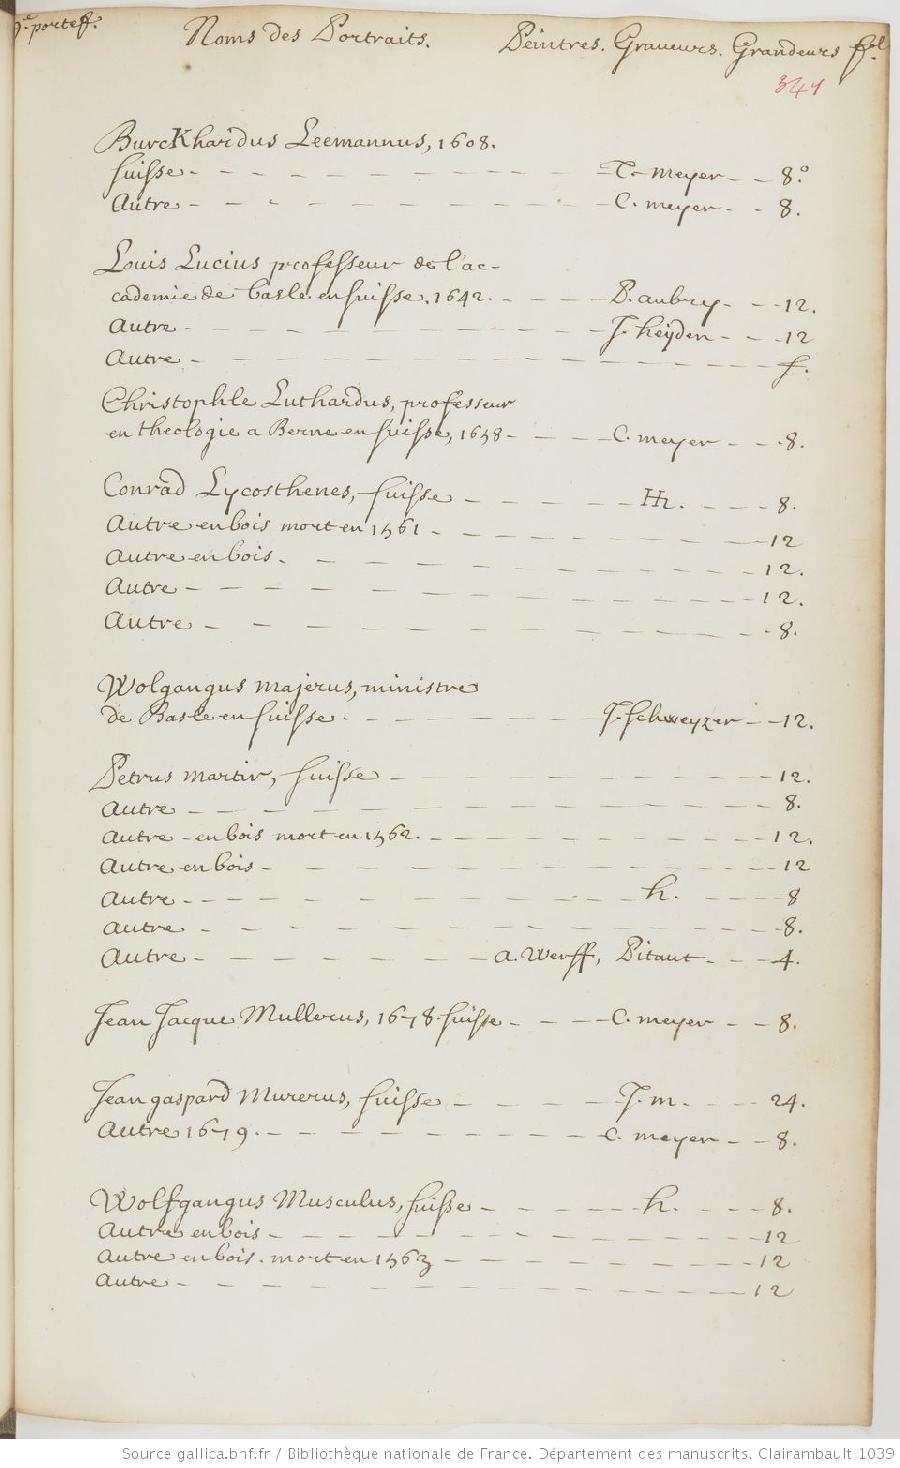 e. portef. Noms des Portraits. Peintres. Graveurs. Grandeurs fol.
341
Burckhardus Leemannus, 1608.
suisse - - - - - - - - - T. meyer - - 8.º
Autre - - - - - - - - - C. meyer - - 8.
Louis Lucius professeur de l'ac-
cademie de basle en suisse. 1642. - - - - P. aubry - - - 12.
Autre - - - - - - - - - J. heyden - - - 12
Autre - - - - - - - - - - - - - f.
Christophle Luthardus, professeur
en theologie a Berne en suisse, 1658 - - - - C. meyer - - - 8.
Conrad Lycosthenes, suisse - - - - - H. - - - - 8.
Autre en bois mort en 1561 - - - - - - - - - 12
Autre en bois. - - - - - - - - - - - 12.
Autre - - - - - - - - - - - - - 12.
Autre - - - - - - - - - - - - - 8.
Wolgangus majerus, ministre
de Basle en suisse. - - - - - - J. Schweyzer - - 12.
Petrus martir, suisse - - - - - - - - - 12.
Autre - - - - - - - - - - - - - 8.
Autre - en bois mort en 1562. - - - - - - - - - 12.
Autre en bois - - - - - - - - - - - 12
Autre - - - - - - - - - - h. - - - - 8
Autre - - - - - - - - - - - - - 8.
Autre - - - - - - - a. Werff, Pitaut - - - 4.
Jean Jacque Mullerus, 1678. suisse - - - - C. meyer - - 8.
Jean gaspard Murerus, suisse - - - - - J. m. - - - - 24.
Autre 1679. - - - - - - - - - C. meyer - - 8.
Wolfgangus Musculus, suisse - - - - - h. - - - - 8.
Autre en bois - - - - - - - - - - - 12
Autre en bois. mort en 1563 - - - - - - - - - 12
Autre - - - - - - - - - - - - - 12
Source gallica.bnf.fr / Bibliothèque nationale de France. Département des manuscrits. Clairambault 1039